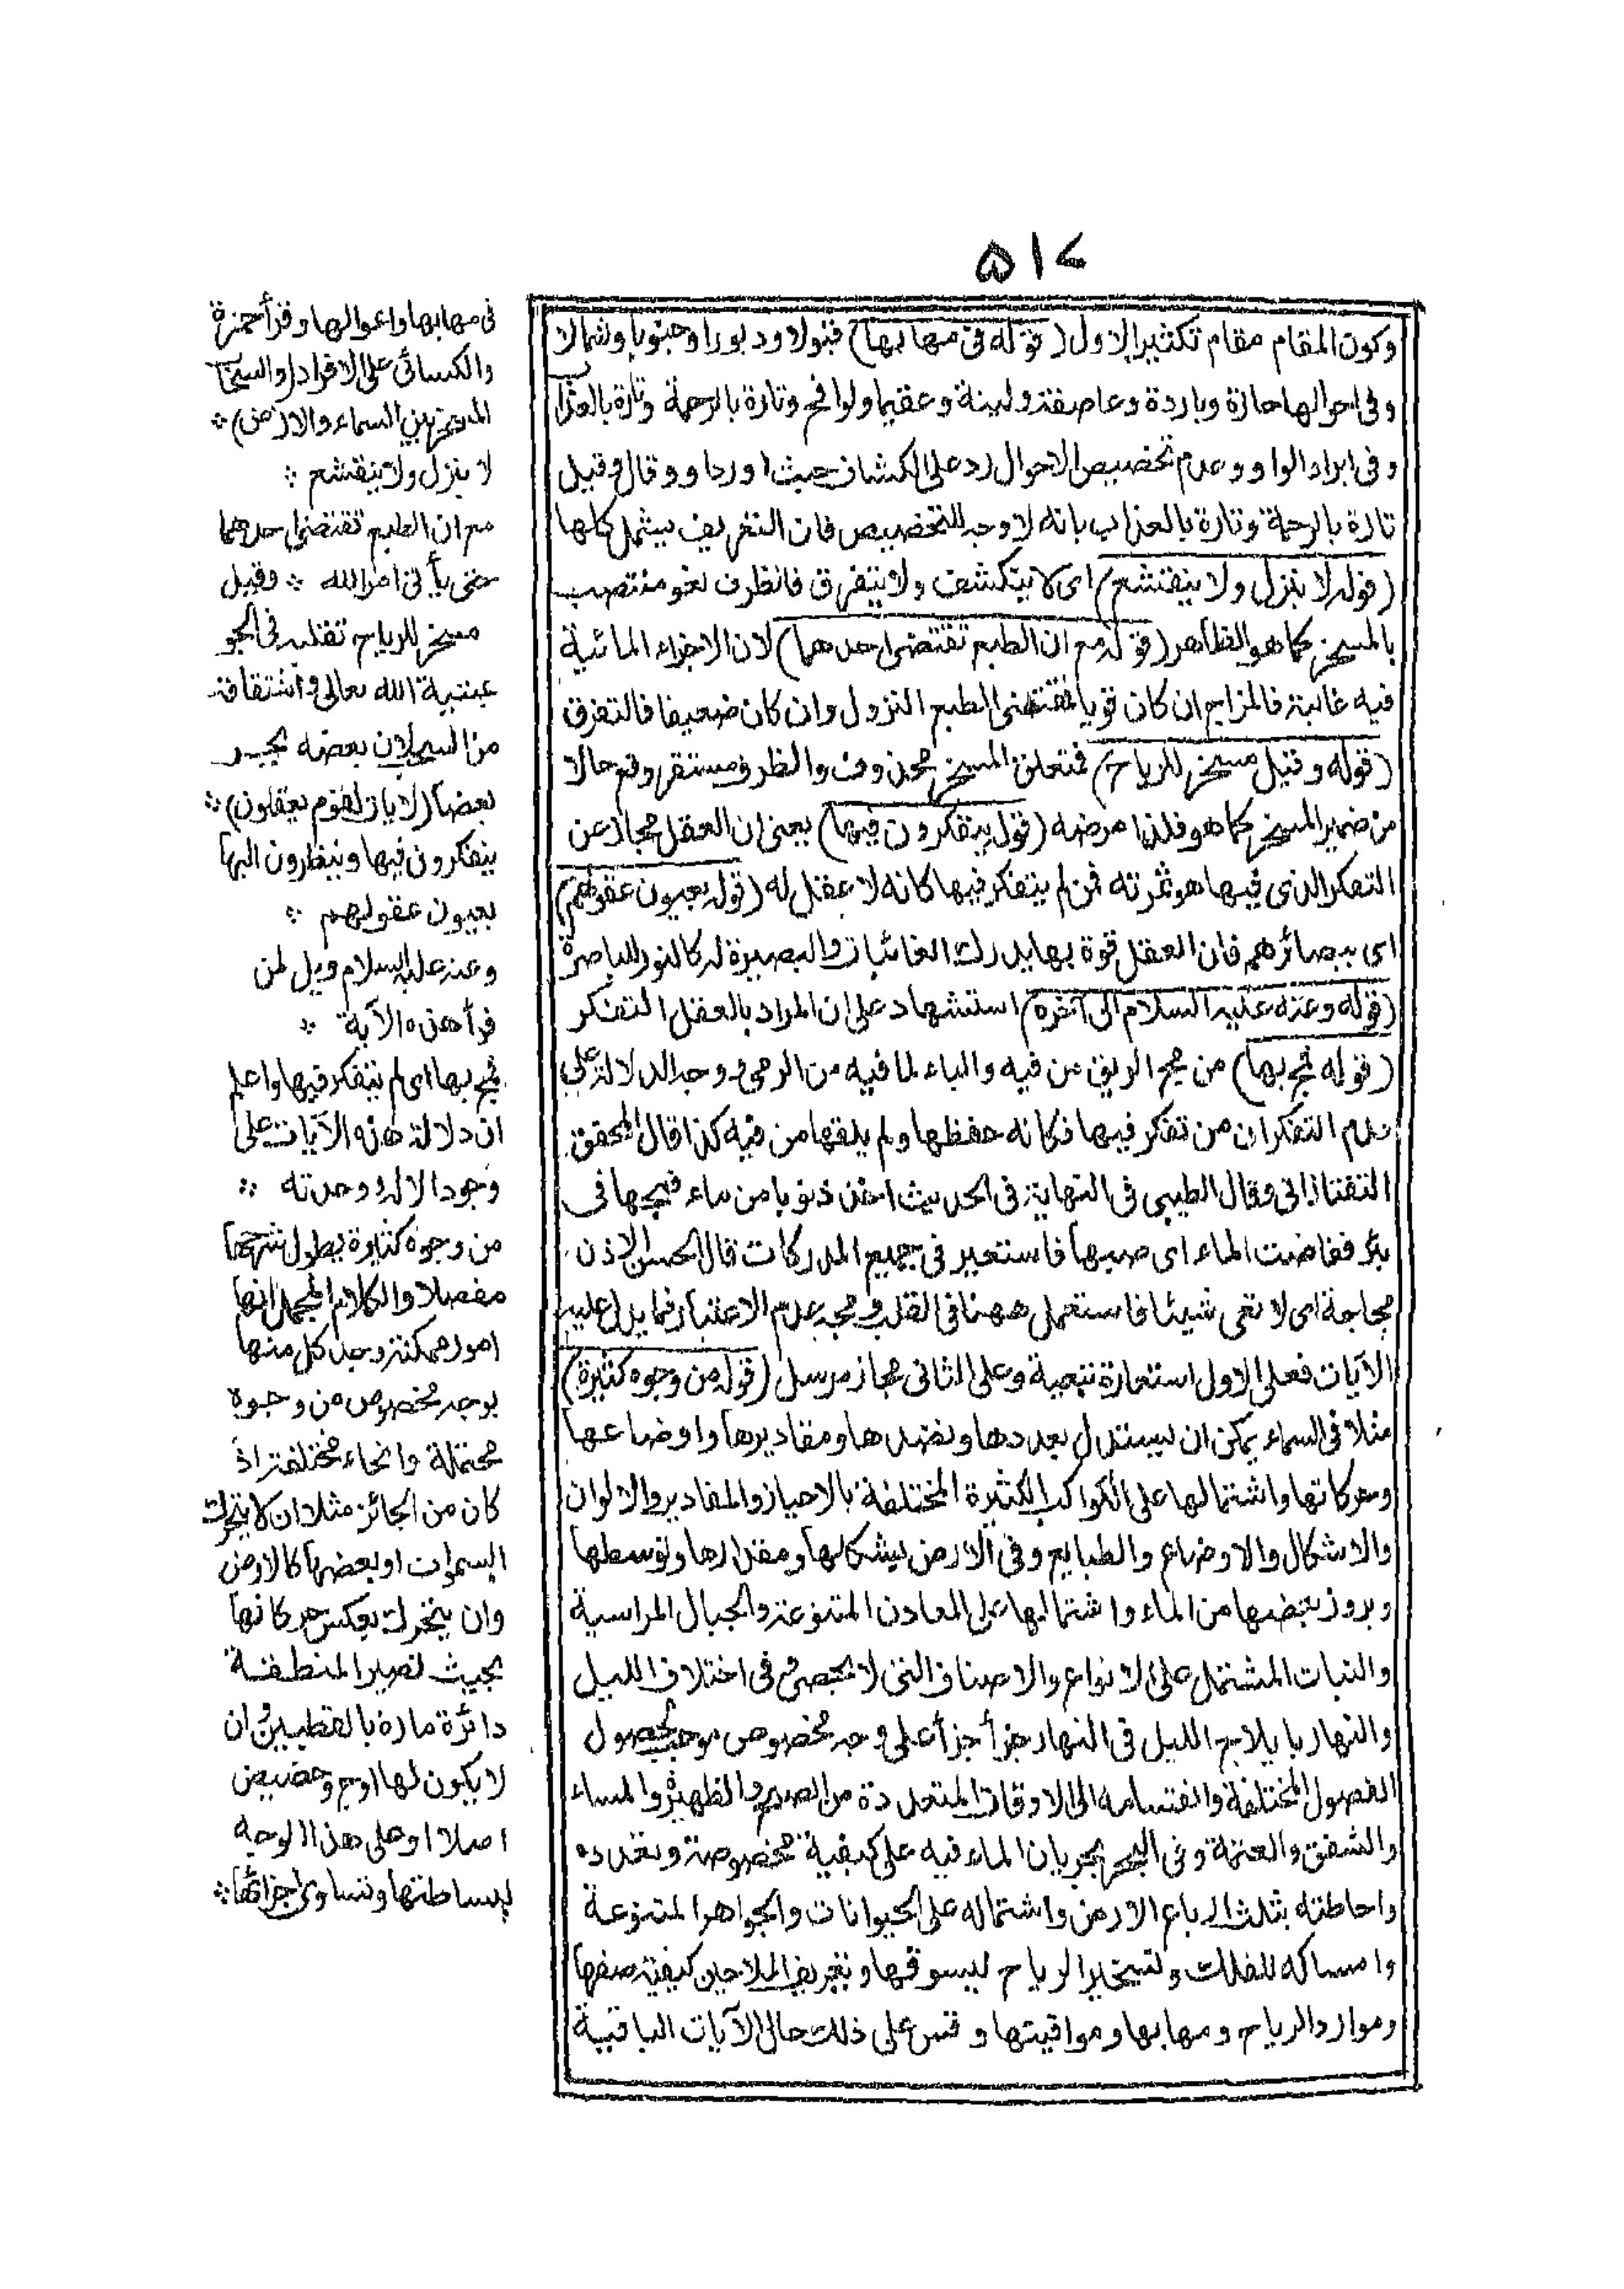 ٥١٢
وكون المقام مقام تكثير الاول (قوله فى مهابها) قبولا ودبورا وجنوبا وشمالا
وفى احوالها حارة وباردة وعاصفة ولينة وعقيما ولواقح وتارة بالرحمة وتارة بالعذاب
وفى ايراد الواو وعدم تخصيص الاحوال رد على الكشاف حيث اورد او وقال وقيل
تارة بالرحمة وتارة بالعذاب بانه لا وجه للتخصيص فان التصريف يشمل كلها
(قوله لا ينزل ولا ينقشع) اى لا ينكشف ولا يتفرق فالظرف لغو منتصب
بالمسخر كما هو الظاهر (قوله مع ان الطبع تقتضى احدهما) لان الاجزاء المائية
فيه غالبة فالمزاج ان كان قويا فمقتضى الطبع النزول وان كان ضعيفا فالتفرق
(قوله وقيل مسخر للرياح) فمتعلق المسخر محذوف والظرف مستقر وقع حالا
من ضمير المسخر كما هو فلذا مرضه (قوله يتفكرون فيها) يعنى ان العقل مجاز عن
التفكر الذى فيها هو ثمرته فمن لم يتفكر فيها كانه لا عقل له (قوله بعيون عقولهم)
اى ببصائرهم فان العقل قوة بها يدرك الغائبات والبصيرة له كالنور للباصرة
(قوله وعنه عليه السلام الى آخره) استشهاد على ان المراد بالعقل التفكر
(قوله فمج بها) من مج الريق من فيه والباء لما فيه من الرمى ووجه الدلالة على
عدم التفكر ان من تفكر فيها فكانه حفظها ولم يلقها من فيه كذا قال المحقق
التفتازانى وقال الطيبى فى النهاية فى الحديث اخذ ذنوبا من ماء فمجها فى
بئر ففاضت الماء اى صبها فاستعير فى جميع المدركات قال الحسن الاذن
مجاجة اى لا تعى شيئا فاستعمل ههنا فى القلب ومجه عدم الاعتبار فما يدل عليه
الآيات فعلى الاول استعارة تبعية وعلى الثانى مجاز مرسل (قوله من وجوه كثيرة)
مثلا فى السماء يمكن ان يستدل بعددها ونضدها ومقاديرها واوضاعها
وحركاتها واشتمالها على الكواكب الكثيرة المختلفة بالاحياز والمقادير والالوان
والاشكال والاوضاع والطبايع وفى الارض بشكلها ومقدارها وتوسطها
وبروز بعضها من الماء واشتمالها على المعادن المتنوعة والجبال الراسية
والنبات المشتمل على الانواع والاصناف التى لا تحصى وفى اختلاف الليل
والنهار بايلاج الليل فى النهار جزأ جزأ على وجه مخصوص موجب لحصول
الفصول المختلفة وانقسامه الى الاوقات المتعددة من الصبح والظهيرة والمساء
والشفق والعتمة وفى البحر بجريان الماء فيه على كيفية مخصوصة وتعدده
واحاطته بثلث ارباع الارض واشتماله على الحيوانات والجواهر المتنوعة
وامساكه للفلك وتسخير الرياح ليسوقها وتعريف الملاحين كيفية صنعها
وموارد الرياح ومهابها ومواقيتها وقس على ذلك حال الآيات الباقية
فى مهابها واحوالها وقرأ حمزة
والكسائى على الافراد (والسحاب
المسخر بين السماء والارض) ⁂
لا ينزل ولا ينقشع ⁂
مع ان الطبع تقتضى احدهما
حتى يأتى امر الله ⁂ وقيل
مسخر للرياح تقلبه فى الجو
بمشيئة الله تعالى واشتقاقه
من السحب لان بعضه يجر
بعضا (لايات لقوم يعقلون) ⁂
يتفكرون فيها وينظرون اليها
بعيون عقولهم ⁂
وعنه عليه السلام ويل لمن
قرأ هذه الآية ⁂
فمج بها اى لم يتفكر فيها واعلم
ان دلالة هذه الآيات على
وجود الاله ووحدته ⁂
من وجوه كثيرة يطول شرحها
مفصلا والكلام المجمل انها
امور ممكنة وجد كل منها
بوجه مخصوص من وجوه
محتملة وانحاء مختلفة اذ
كان من الجائز مثلا ان لا يتحرك
السموات او بعضها كالارض
وان يتحرك بعكس حركاتها
بحيث تصير المنطقة
دائرة مارة بالقطبين وان
لا يكون لها اوج وحضيض
اصلا او على هذا الوجه
لبساطتها وتساوى اجزائها ⁂